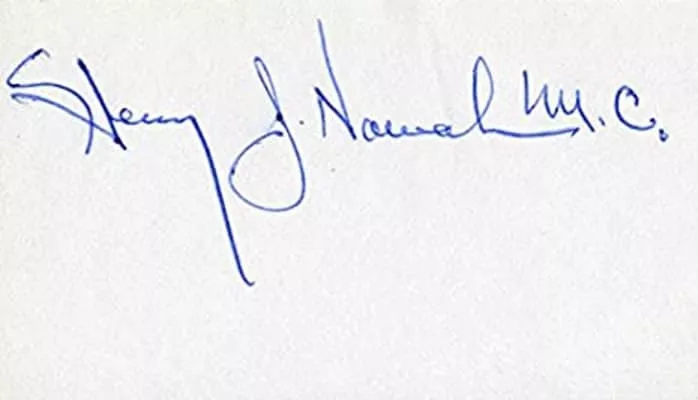 Henry J. Nowak M.C.